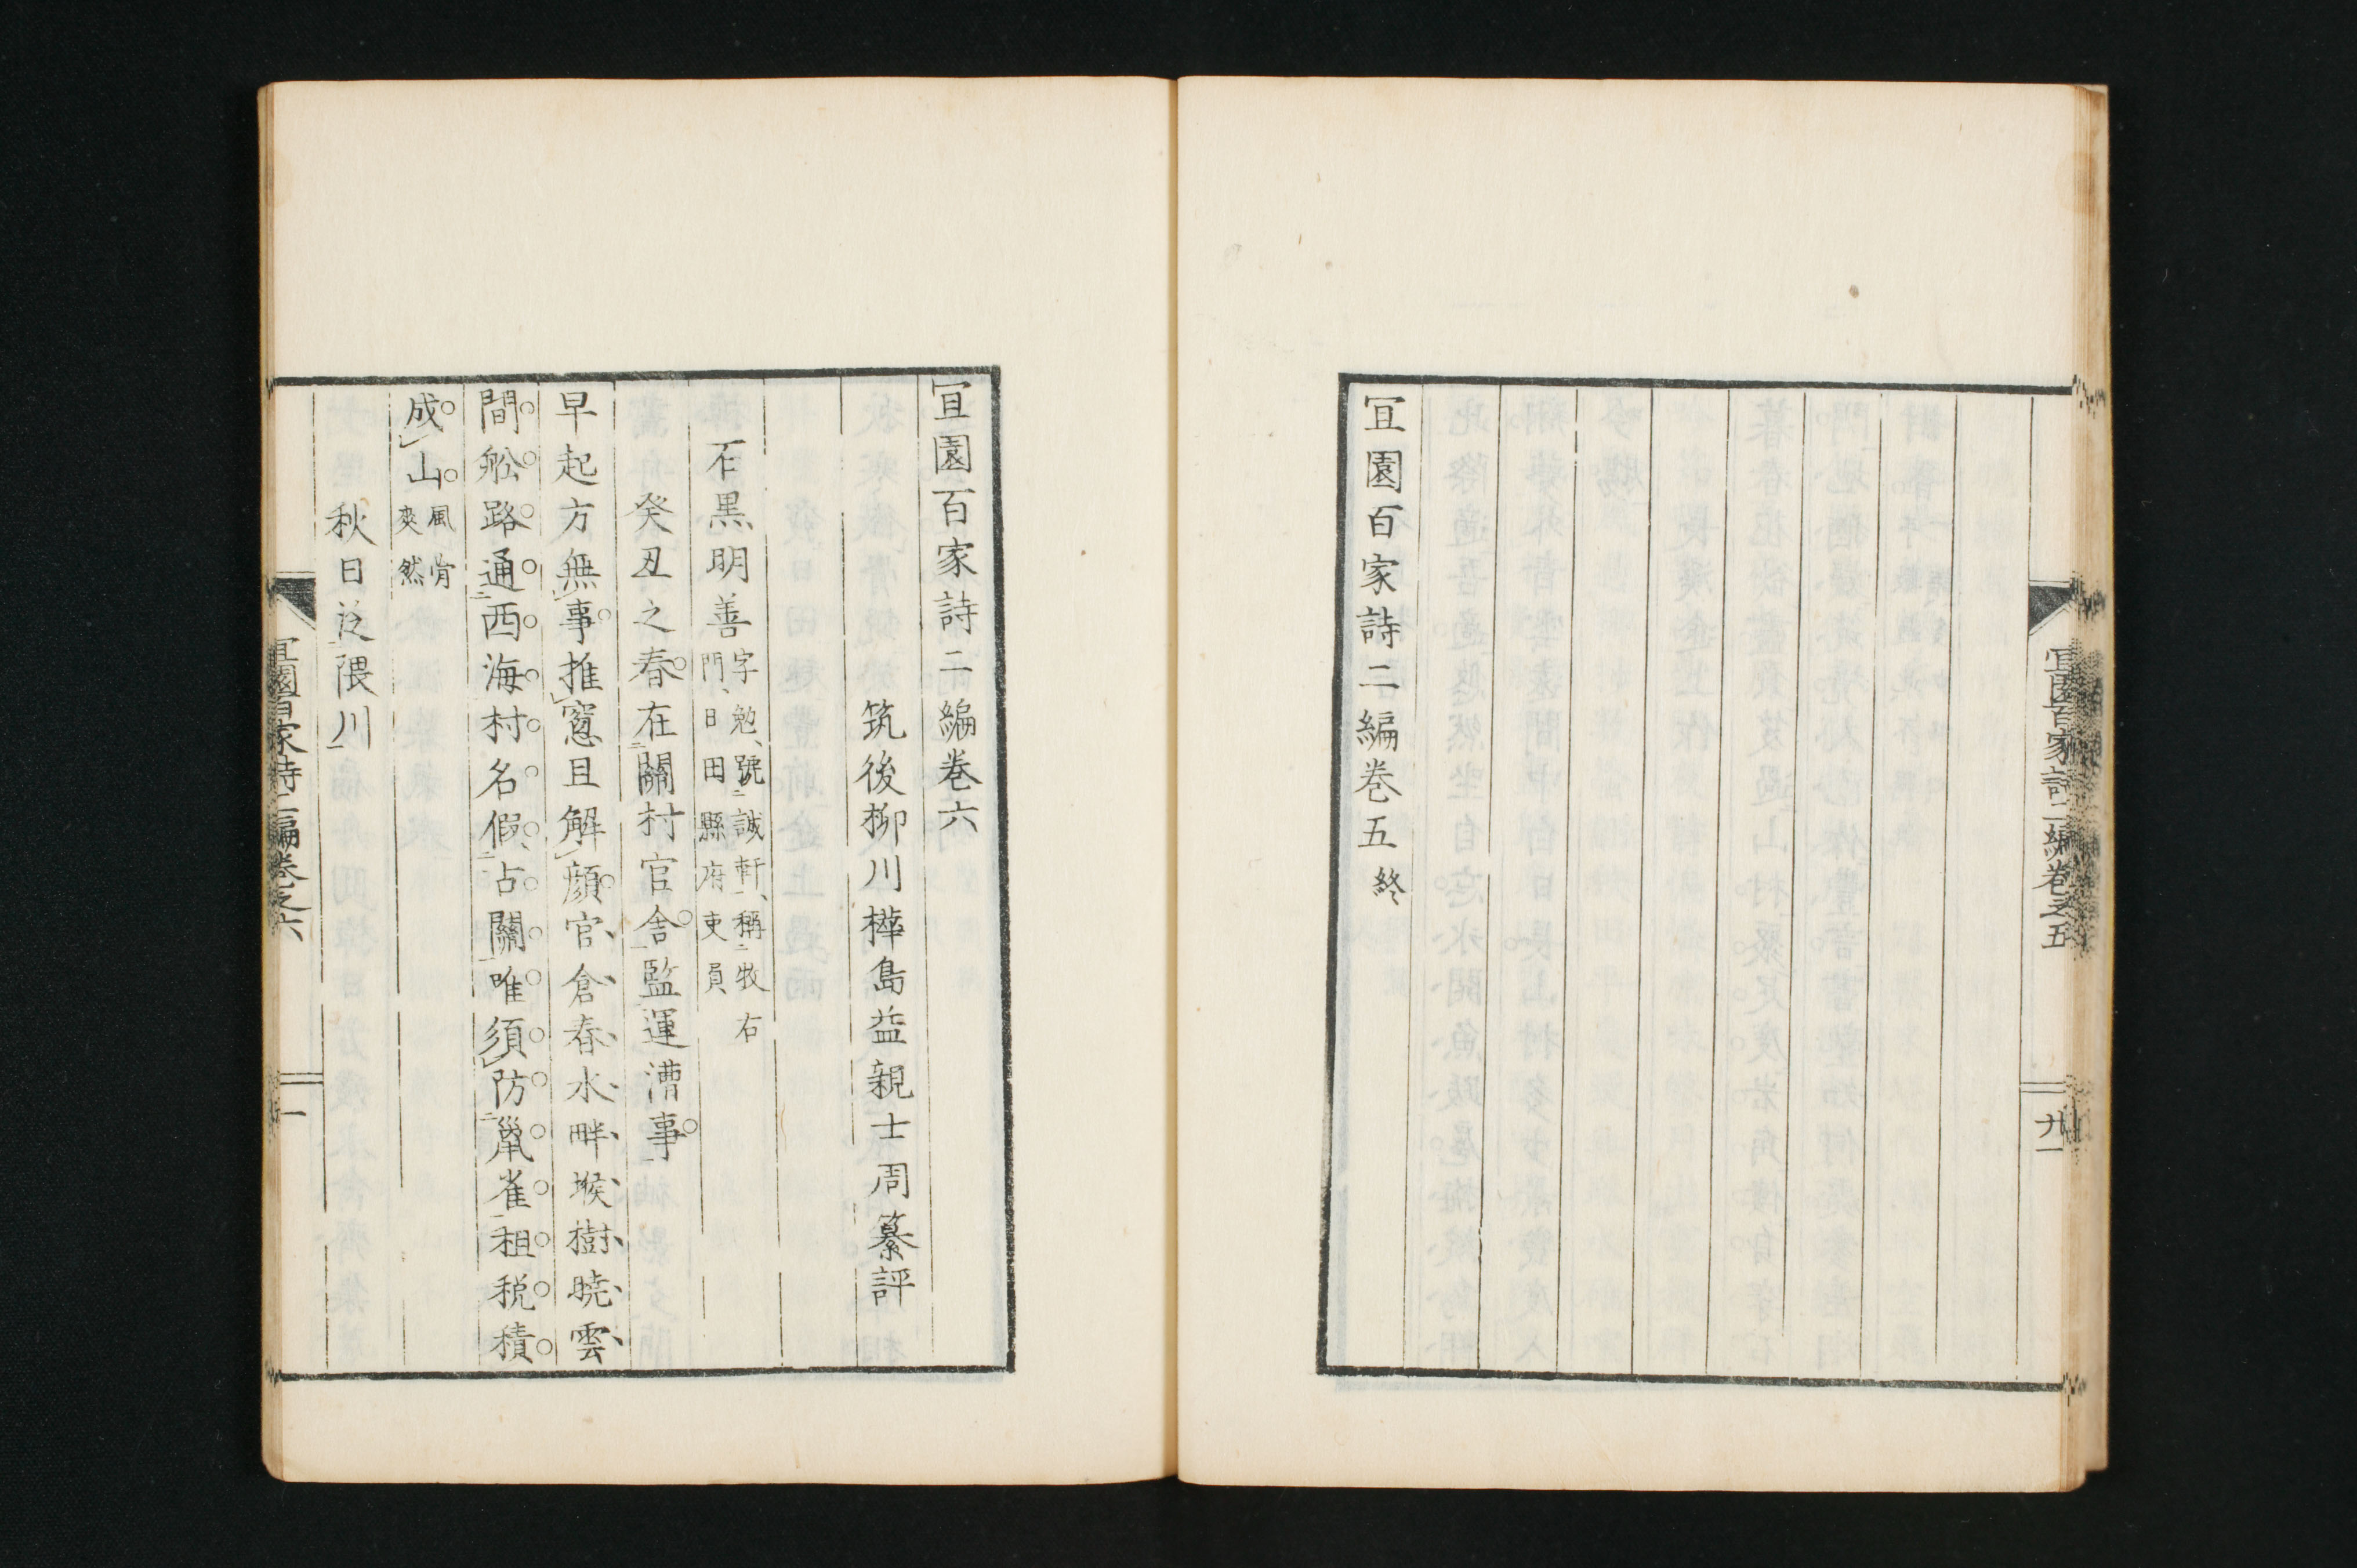 宜園百家詩二編卷之五
廿一
宜園百家詩二編卷五終
宜園百家詩二編卷六
筑後柳川樺島益親士周纂評
石黒明善字勉、號二誠軒一、稱二牧右
門、日田縣府吏員
癸丑之春。在二關村官舎一。監運漕事。
早起方無事。推窻且解顔。官倉春水畔、堠樹曉雲
間。舩路通二西海一。村名假二占關一。唯須防二鼠雀一。租税積
成山。風骨
爽然
秋日泛隈川
宜園百家詩二編卷之六
一